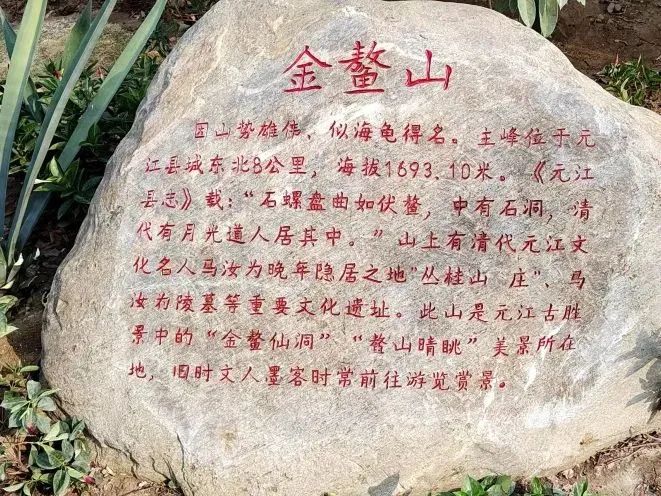 金鳌山
因山势雄伟，似海龟得名。主峰位于元
江县城东北8公里，海拔1693.10米。《元江
县志》载：“石螺盘曲如伏鳌，中有石洞，清
代有月光道人居其中。”山上有清代元江文
化名人马汝为晚年隐居之地“丛桂山 庄”、马
汝为陵墓等重要文化遗址。此山是元江古胜
景中的“金鳌仙洞”“鳌山晴眺”美景所在
地，旧时文人墨客时常前往游览赏景。